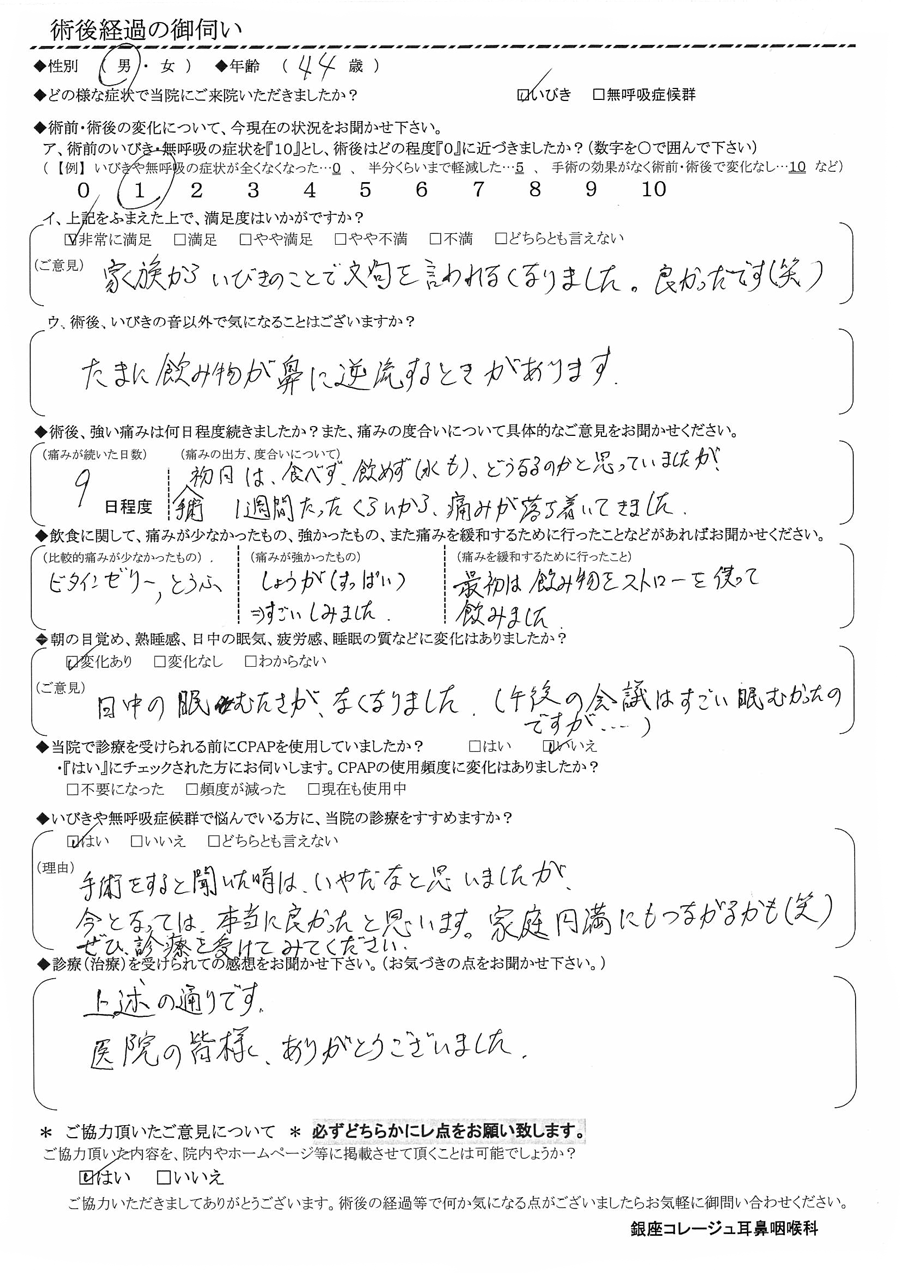 術後経過の御伺い
◆性別 （ 男 ・ 女 ） ◆年齢 （ 44 歳 ）
◆どの様な症状で当院にご来院いただきましたか？ ☑いびき □無呼吸症候群
◆術前・術後の変化について、今現在の状況をお聞かせ下さい。
ア、術前のいびき・無呼吸の症状を『10』とし、術後はどの程度『0』に近づきましたか？（数字を○で囲んで下さい）
（ 【例】 いびきや無呼吸の症状が全くなくなった…0 、 半分くらいまで軽減した…5 、 手術の効果がなく術前・術後で変化なし…10 など）
0 1 2 3 4 5 6 7 8 9 10
イ、上記をふまえた上で、満足度はいかがですか？
☑非常に満足 □満足 □やや満足 □やや不満 □不満 □どちらとも言えない
（ご意見） 家族から いびきのことで文句を言われなくなりました。良かったです（笑）
ウ、術後、いびきの音以外で気になることはございますか？
たまに飲み物が鼻に逆流するときがあります.
◆術後、強い痛みは何日程度続きましたか？また、痛みの度合いについて具体的なご意見をお聞かせください。
（痛みが続いた日数） （痛みの出方、度合いについて）
初日は、食べず、飲めず（水も）、どうなるのかと思っていましたが、
9 日程度 手術 1週間たったくらいから、痛みが落ち着いてきました.
◆飲食に関して、痛みが少なかったもの、強かったもの、また痛みを緩和するために行ったことなどがあればお聞かせください。
（比較的痛みが少なかったもの） （痛みが強かったもの） （痛みを緩和するために行ったこと）
ビタインゼリー, とうふ しょうが（すっぱい） 最初は飲み物をストローを使って
⇒すごいしみました. 飲みました
◆朝の目覚め、熟睡感、日中の眠気、疲労感、睡眠の質などに変化はありましたか？
☑変化あり □変化なし □わからない
（ご意見） 日中の眠むたさが、なくなりました. （午後の会議はすごい眠むかったの
ですが……）
◆当院で診療を受けられる前にCPAPを使用していましたか？ □はい ☑いいえ
・『はい』にチェックされた方にお伺いします。CPAPの使用頻度に変化はありましたか？
□不要になった □頻度が減った □現在も使用中
◆いびきや無呼吸症候群で悩んでいる方に、当院の診療をすすめますか？
☑はい □いいえ □どちらとも言えない
（理由） 手術をすると聞いた時は、いやだなと思いましたが、
今となっては、本当に良かったと思います。家庭円満にもつながるかも（笑）
ぜひ、診療を受けてみてください.
◆診療（治療）を受けられての感想をお聞かせ下さい。（お気づきの点をお聞かせ下さい。）
上述の通りです.
医院の皆様に、ありがとうございました.
＊ ご協力頂いたご意見について ＊ 必ずどちらかにレ点をお願い致します。
ご協力頂いた内容を、院内やホームページ等に掲載させて頂くことは可能でしょうか？
☑はい □いいえ
ご協力いただきましてありがとうございます。術後の経過等で何か気になる点がございましたらお気軽に御問い合わせください。
銀座コレージュ耳鼻咽喉科